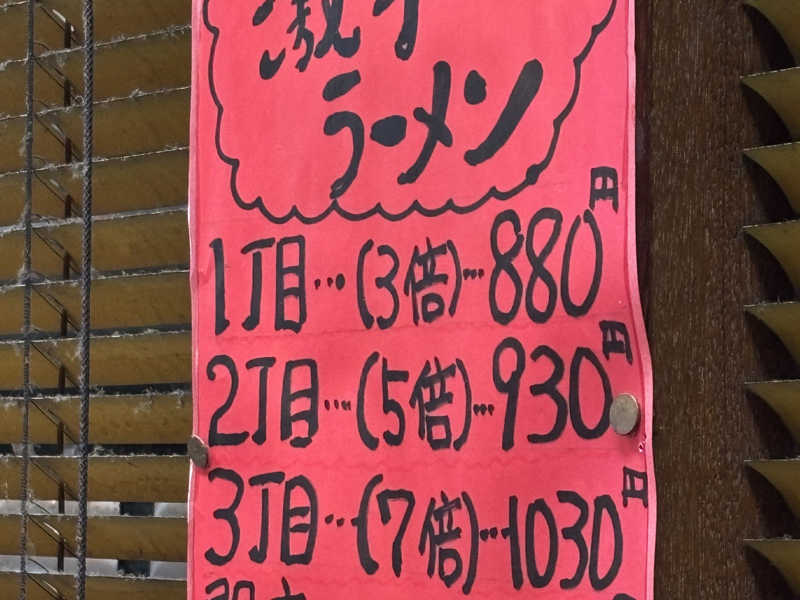 激辛
ラーメン
1丁目…(3倍)…880円
2丁目…(5倍)…930円
3丁目…(7倍)…1030円